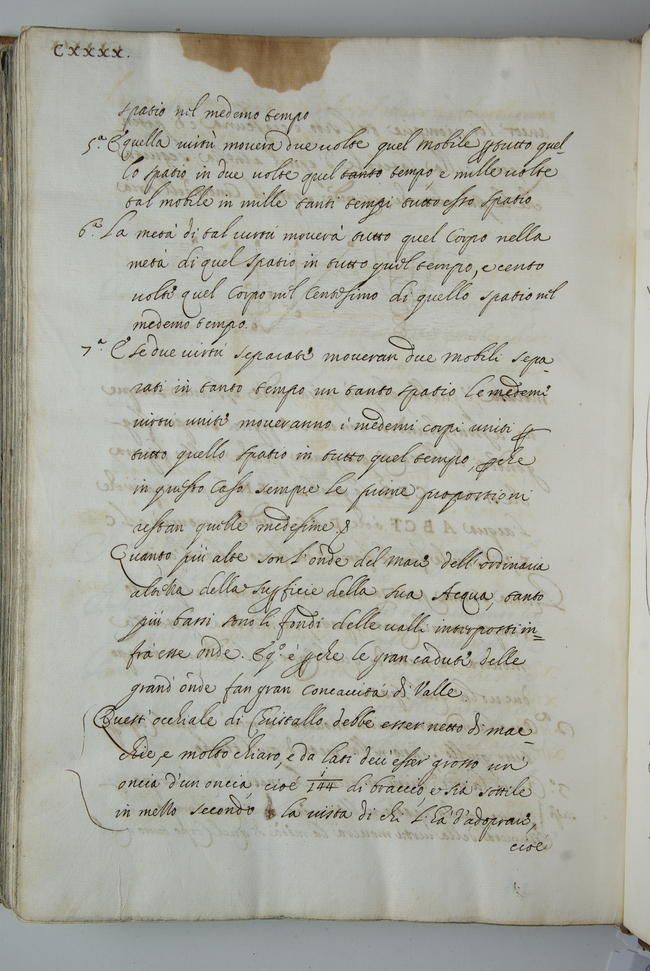 CXXXX.
spatio nel medemo tempo
5.ª E quella virtù moverà due volte quel mobile p tutto quel=
lo spatio in due volte quel tanto tempo, e mille volte
tal mobile in mille tanti tempi tutto esso spatio
6.ª La metà di tal virtù moverà tutto quel Corpo nella
metà di quel spatio in tutto quel tempo, e cento
volte quel Corpo nel Centesimo di quello spatio nel
medemo tempo.
7.ª E se due virtù separate moveran due mobili sepa=
rati in tanto tempo un tanto spatio le medeme
virtù unite moveranno i medemi corpi uniti p
tutto quello spatio in tutto quel tempo, pche
in questo caso sempre le prime proportioni
restan quelle medesime.
Quanto più alte son l'onde del mare dell'ordinaria
altezza della supficie della sua Acqua, tanto
più bassi sono li fondi delle valli interposti in=
fra esse onde. E q.º é pche le gran cadute delle
grand'onde fan gran concavità di Valle
Quest'occhiale di Cristallo debbe esser netto di mac=
chie, e molto chiaro, e da lati dev'esser grosso un'
oncia d'un oncia, cioé 1/144 di braccio, e sia sottile
in mezzo secondo la vista di chi l'hà d'adoprare,
cioé